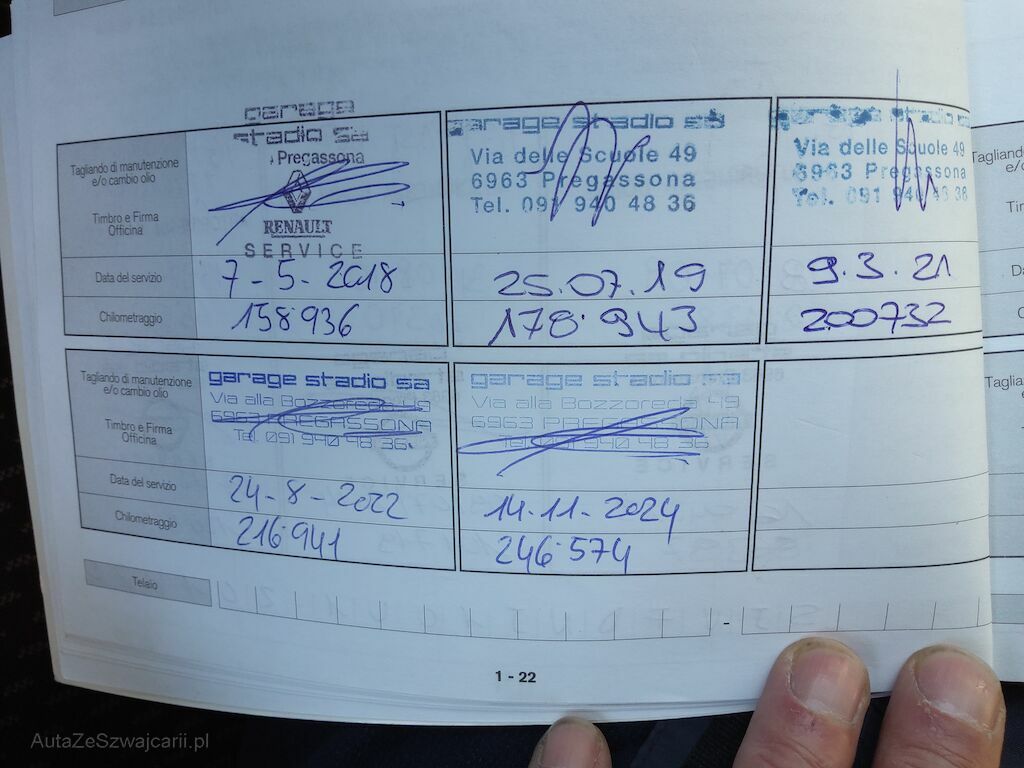 Tagliando di manutenzione
e/o cambio olio
Timbro e Firma
Officina
garage
stadio sa
Pregassona
RENAULT
SERVICE
garage stadio sa
Via delle Scuole 49
6963 Pregassona
Tel. 091 940 48 36
garage stadio sa
Via delle Scuole 49
6963 Pregassona
Tel. 091 940 48 36
Data del servizio
7-5-2018
25.07.19
9.3.21
Chilometraggio
158936
178.943
200732
Tagliando di manutenzione
e/o cambio olio
Timbro e Firma
Officina
garage stadio sa
Via alla Bozzoreda 49
6963 PREGASSONA
Tel. 091 940 48 36
garage stadio sa
Via alla Bozzoreda 49
6963 PREGASSONA
Tel. 091 940 48 36
Data del servizio
24-8-2022
14-11-2024
Chilometraggio
216.941
246.574
Telaio
-
1 - 22
AutaZeSzwajcarii.pl